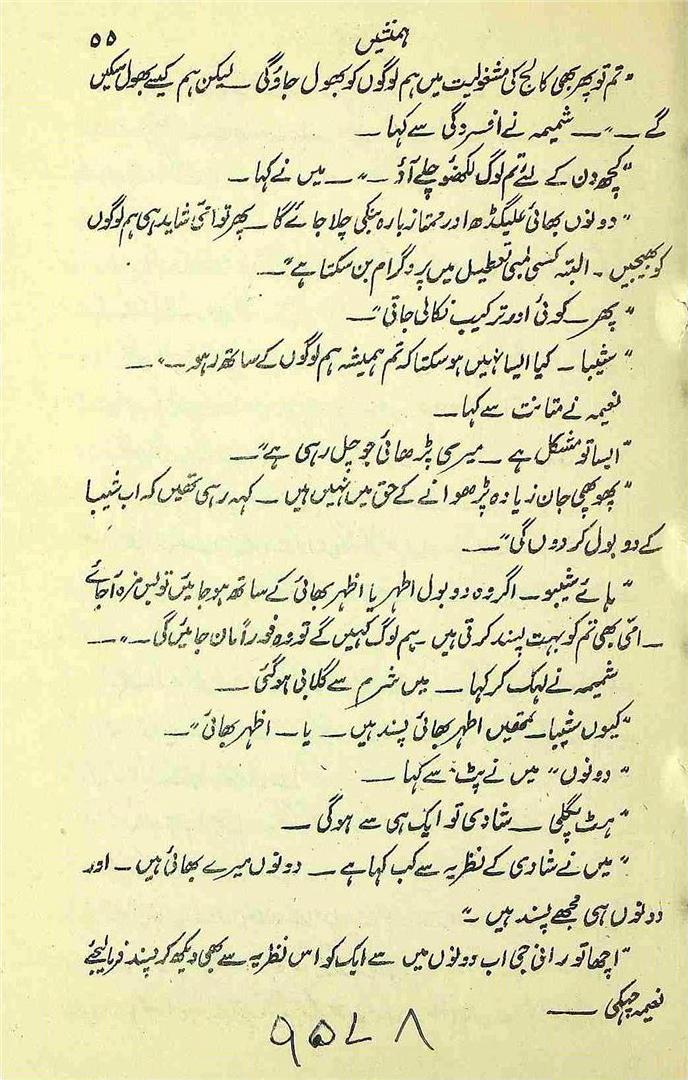 ہمنشیں ۵۵
"تم تو پھر بھی کالج کی مشغولیت میں ہم لوگوں کو بھول جاؤ گی ــ لیکن ہم کیسے بھول سکیں
گے ــ"ــ شمیمہ نے افسردگی سے کہا ــ
"کچھ دن کے لئے تم لوگ لکھنؤ چلے آؤ ــ"ــ میں نے کہا ــ
"دونوں بھائی علیگڈھ اور ممتاز بارہ بنکی چلا جائے گا ــ پھر تو امّی شاید ہی ہم لوگوں
کو بھیجیں ــ البتہ کسی لمبی تعطیل میں پروگرام بن سکتا ہے"ــ
"پھر ــ کوئی اور ترکیب نکالی جاتی"ــ
"شیبا ــ کیا ایسا نہیں ہو سکتا کہ تم ہمیشہ ہم لوگوں کے ساتھ رہو ــ"ــ
نعیمہ نے متانت سے کہا ــ
"ایسا تو مشکل ہے ــ میری پڑھائی جو چل رہی ہے"ــ
"پھوپھی جان زیادہ پڑھوانے کے حق میں نہیں ہیں ــ کہہ رہی تھیں کہ اب شیبا
کے دو بول کر دوں گی"ــ
"ہائے شیبو ــ اگر وہ دو بول اطہر یا اظہر بھائی کے ساتھ ہو جائیں تو بس مزہ آ جائے
ــ امّی بھی تم کو بہت پسند کرتی ہیں ــ ہم لوگ کہیں گے تو وہ فوراً مان جائیں گی ــ"ــ
شمیمہ نے لہک کر کہا ــ میں شرم سے گلابی ہو گئی ــ
"کیوں شیبا ــ تمھیں اطہر بھائی پسند ہیں ــ یا ــ اظہر بھائی"ــ
"دونوں" میں نے پٹ سے کہا ــ
"ہٹ پگلی ــ شادی تو ایک ہی سے ہو گی ــ
"میں نے شادی کے نظریہ سے کب کہا ہے ــ دونوں میرے بھائی ہیں ــ اور
دونوں ہی مجھے پسند ہیں ــ"
"اچھا تو رانی جی اب دونوں میں سے ایک کو اس نظریہ سے بھی دیکھ کر پسند فرما لیجئے
نعیمہ چہکی ــ
۹۵۷۸